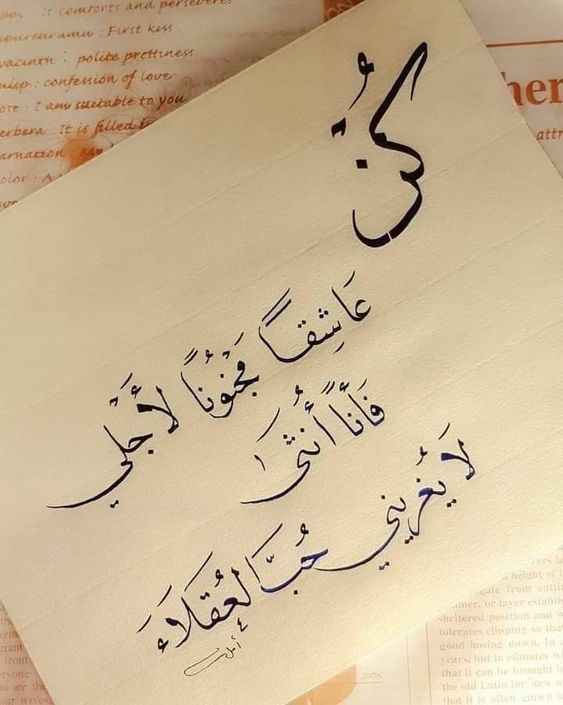 كُن
عَاشِقًا مَجْنُونًا لأَجْلي
فَأنَاً أُنثَى
لَا يُغريني حُبَّ العُقَلَاءَ
أمل
pon It comforts and perseveres
: First kiss
hyacinth : polite prettiness
tulip : confession of love
rose : I am suitable to you
gerbera It is filled
carnation : my
color : A
her
attr
height of
gate from cutting
or layer establis
sheltered position and w
tolerates clipping so that
good hosing down. In
years, but in climates w
that it can be brought
the old Latin for 'dew of
that it is often grown n
pink